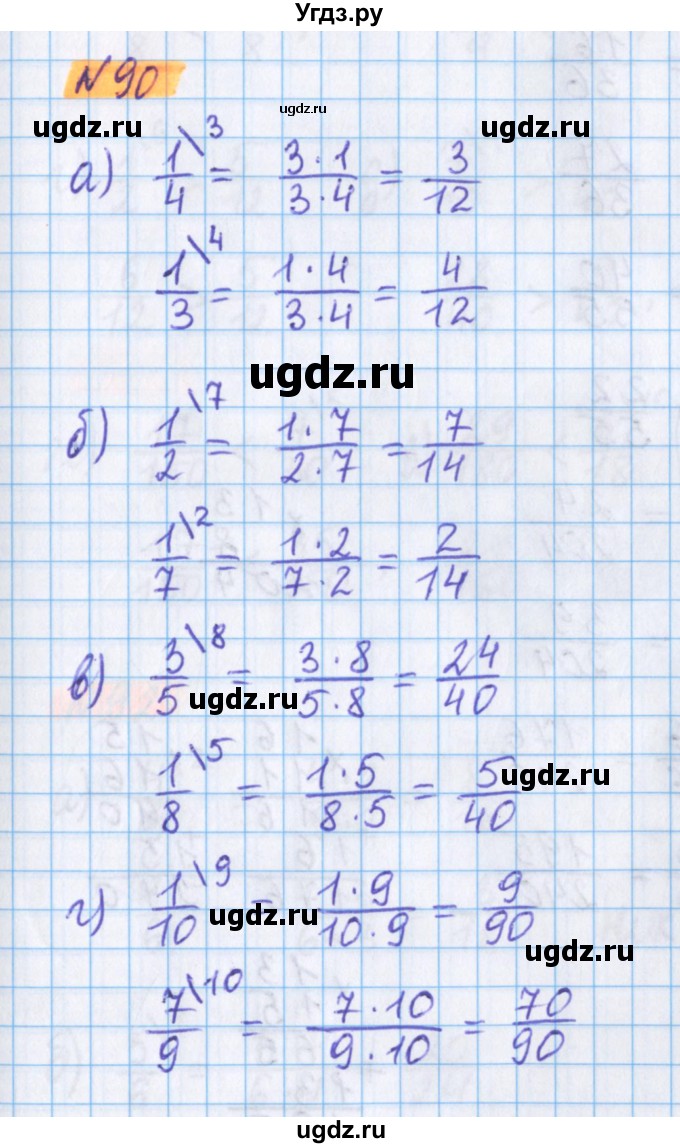 Угдз.ру
№ 90
ugdz.ru ugdz.ru ugdz.ru
а) 1/4 \3 = 3·1/3·4 = 3/12
1/3 \4 = 1·4/3·4 = 4/12
ugdz.ru
б) 1/2 \7 = 1·7/2·7 = 7/14
1/7 \2 = 1·2/7·2 = 2/14
в) 3/5 \8 = 3·8/5·8 = 24/40
ugdz.ru
1/8 \5 = 1·5/8·5 = 5/40
ugdz.ru
г) 1/10 \9 = 1·9/10·9 = 9/90
ugdz.ru
ugdz.ru
7/9 \10 = 7·10/9·10 = 70/90
ugdz.ru